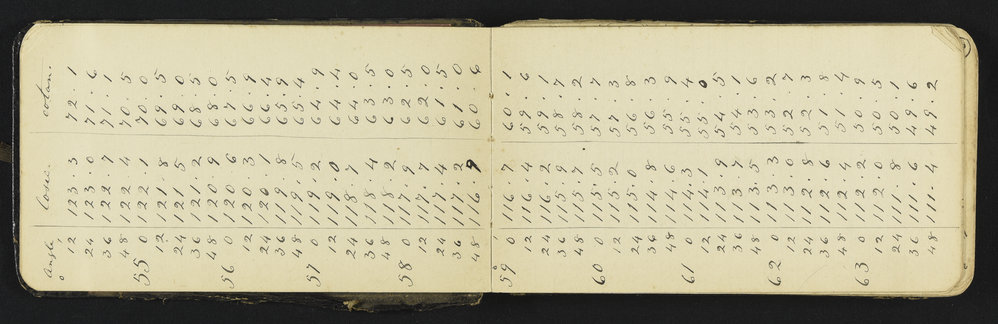 Angle. Cosec. Cotan.
° '
12 123.3 72.1
24 123.0 71.6
36 122.7 71.1
48 122.4 70.5
55 0 122.1 70.0
12 121.8 69.5
24 121.5 69.0
36 121.2 68.5
48 120.9 68.0
56 0 120.6 67.5
12 120.3 66.9
24 120.1 66.4
36 119.8 65.9
48 119.5 65.4
57 0 119.2 64.9
12 119.0 64.4
24 118.7 64.0
36 118.4 63.5
48 118.2 63.0
58 0 117.9 62.5
12 117.7 62.0
24 117.4 61.5
36 117.2 61.0
48 116.9 60.6
59° 0 116.7 60.1
12 116.4 59.6
24 116.2 59.1
36 115.9 58.7
48 115.7 58.2
60 0 115.5 57.7
12 115.2 57.3
24 115.0 56.8
36 114.8 56.3
48 114.6 55.9
61 0 114.3 55.4
12 114.1 55.0
24 113.9 54.5
36 113.7 54.1
48 113.5 53.6
62 0 113.3 53.2
12 113.0 52.7
24 112.8 52.3
36 112.6 51.8
48 112.4 51.4
63 0 112.2 50.9
12 112.0 50.5
24 111.8 50.1
36 111.6 49.6
48 111.4 49.2